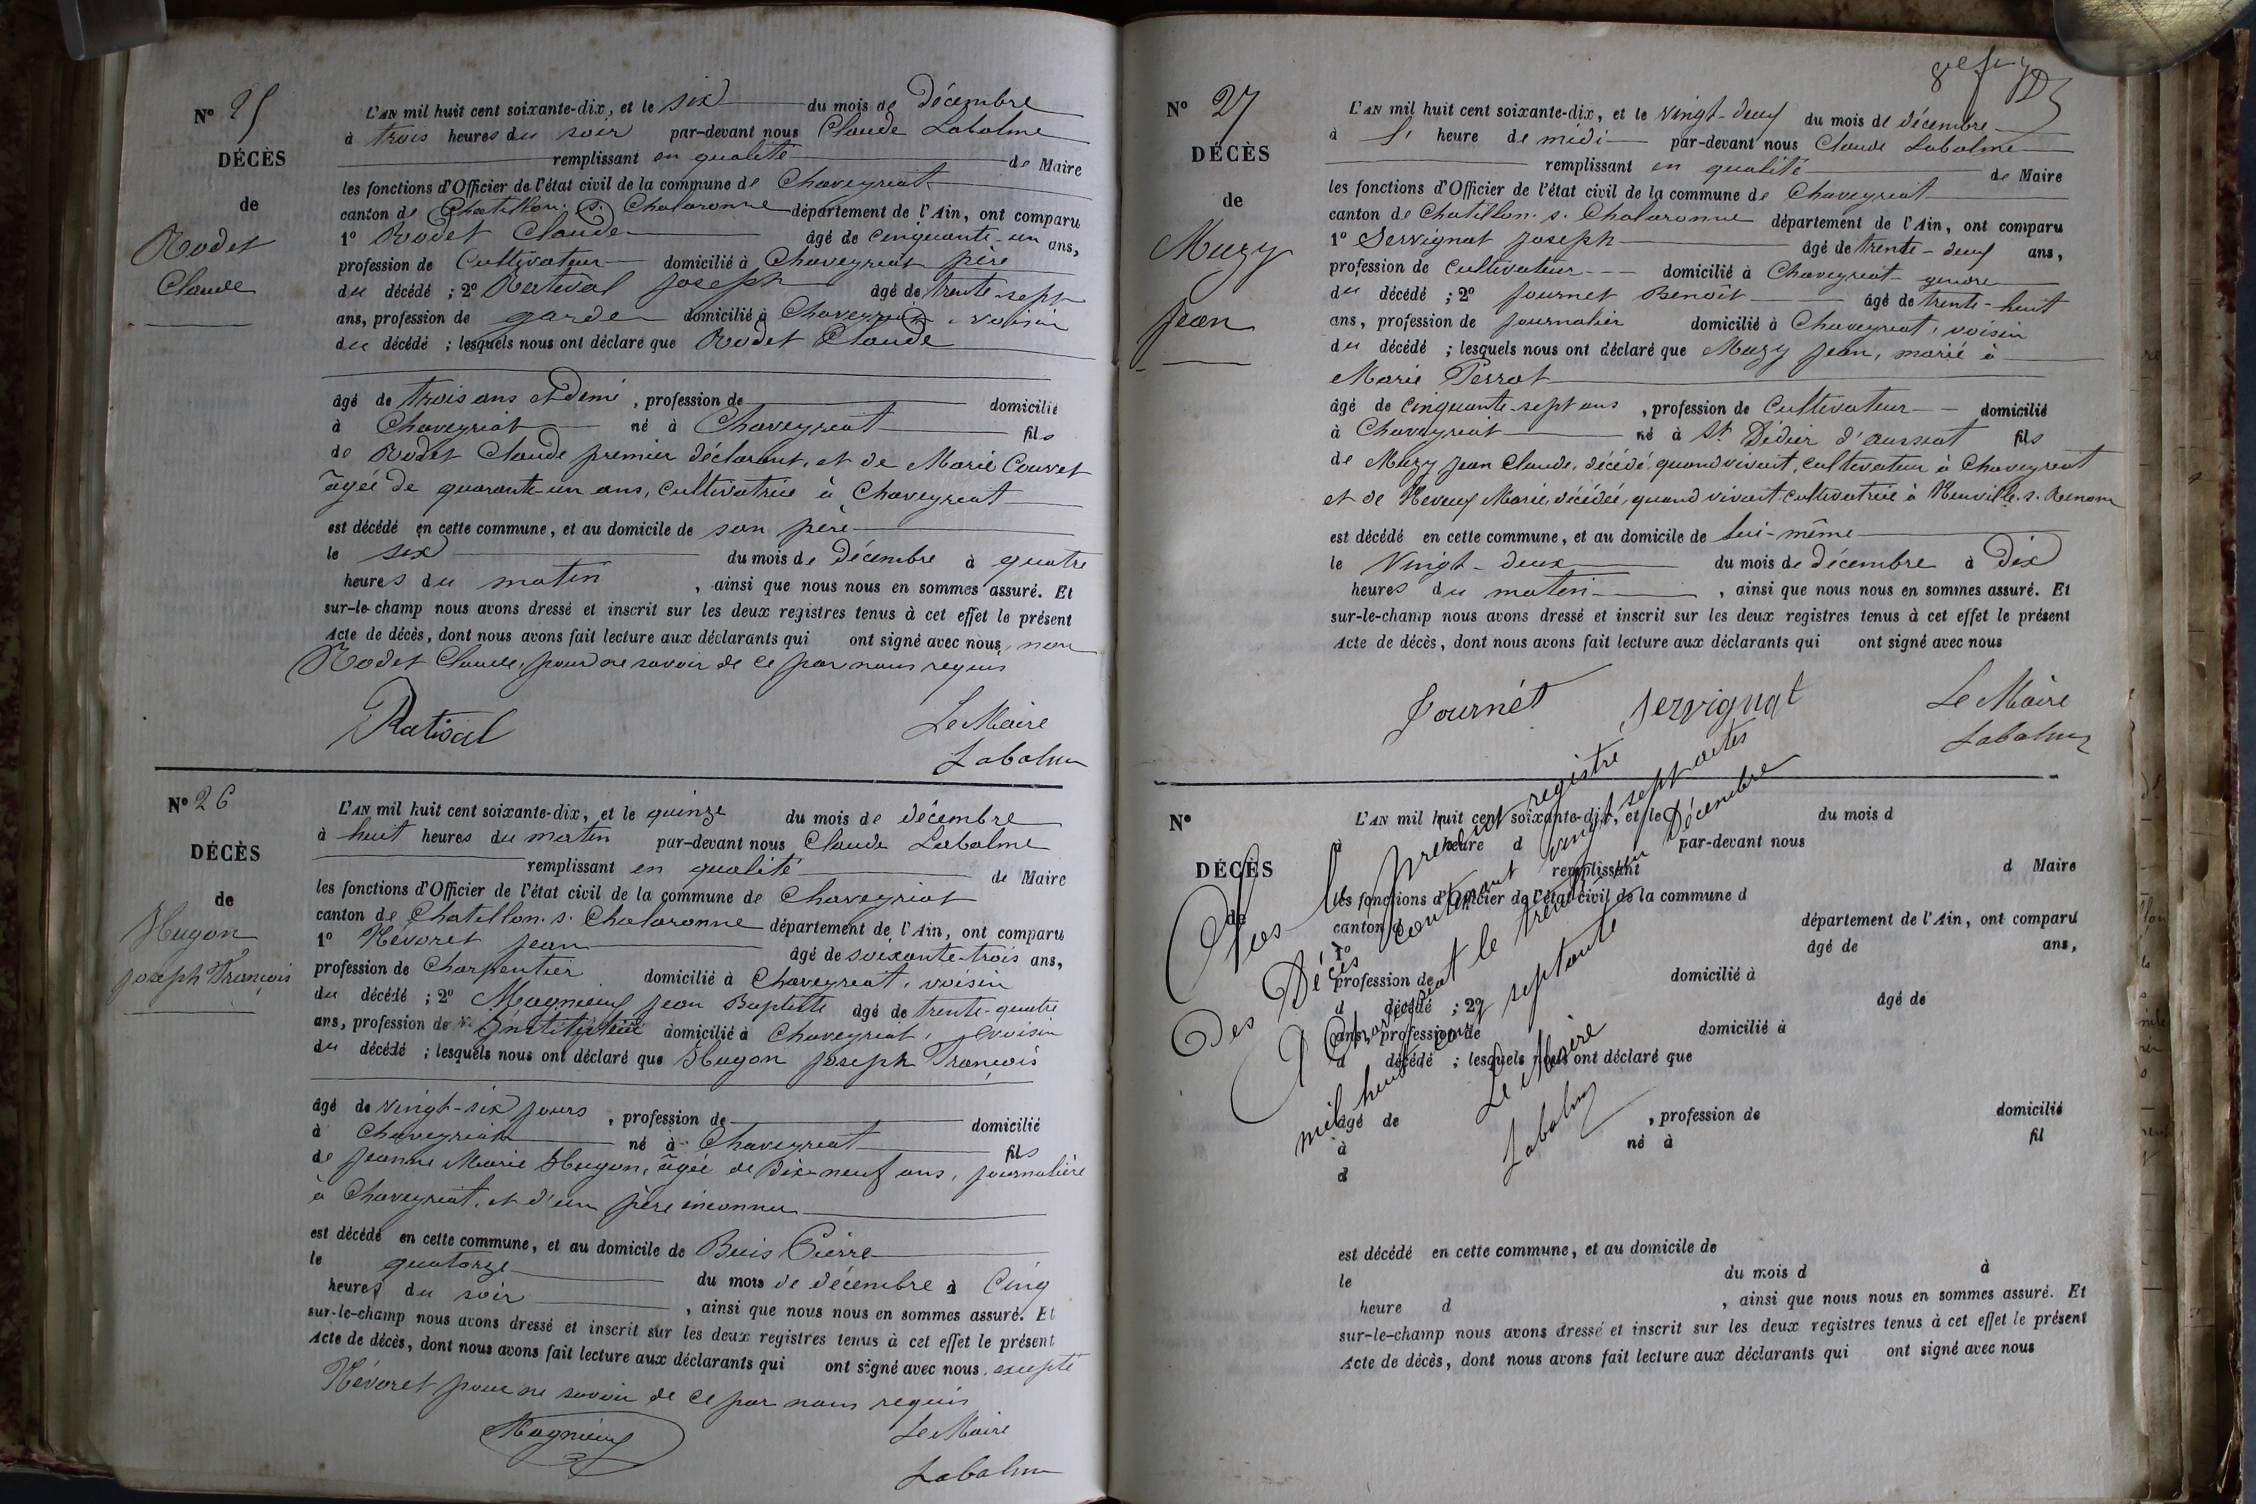 N° 25
DÉCÈS
de
Rodet
Claude
L'AN mil huit cent soixante-dix, et le six du mois de Décembre
à trois heures du soir par-devant nous Claude Labalme
remplissant en qualité de Maire
les fonctions d'Officier de l'état civil de la commune de Chaveyriat
canton de Chatillon. s. Chalaronne département de l'Ain, ont comparu
1° Rodet Claude âgé de cinquante-un ans,
profession de Cultivateur domicilié à Chaveyriat père
du décédé ; 2° Ratival Joseph âgé de trente-sept
ans, profession de garde domicilié à Chaveyriat, voisin
du décédé ; lesquels nous ont déclaré que Rodet Claude
âgé de trois ans et demi , profession de domicilié
à Chaveyriat né à Chaveyriat fils
de Rodet Claude premier déclarant, et de Marie Couvet
âgée de quarante-un ans, cultivatrice à Chaveyriat
est décédé en cette commune, et au domicile de son père
le six du mois de Décembre à quatre
heures du matin , ainsi que nous nous en sommes assuré. Et
sur-le-champ nous avons dressé et inscrit sur les deux registres tenus à cet effet le présent
Acte de décès, dont nous avons fait lecture aux déclarants qui ont signé avec nous, non
Rodet Claude, pour ne savoir de ce par nous requis
Ratival
Le Maire
Labalme
N° 26
DÉCÈS
de
Hugon
Joseph François
L'AN mil huit cent soixante-dix, et le quinze du mois de décembre
à huit heures du matin par-devant nous Claude Labalme
remplissant en qualité de Maire
les fonctions d'Officier de l'état civil de la commune de Chaveyriat
canton de Chatillon. s. Chalaronne département de l'Ain, ont comparu
1° Névoret Jean âgé de soixante-trois ans,
profession de Charpentier domicilié à Chaveyriat, voisin
du décédé ; 2° Magnieny Jean Baptiste âgé de trente-quatre
ans, profession de domicilié à Chaveyriat, voisin
du décédé ; lesquels nous ont déclaré que Hugon Joseph François
âgé de vingt-six jours , profession de domicilié
à Chaveyriat né à Chaveyriat fils
de Jeanne Marie Hugon, âgée de Dix-neuf ans, journalière
à Chaveyriat, et d'un père inconnu
est décédé en cette commune, et au domicile de Buis Pierre
le quatorze du mois de décembre à Cinq
heures du soir , ainsi que nous nous en sommes assuré. Et
sur-le-champ nous avons dressé et inscrit sur les deux registres tenus à cet effet le présent
Acte de décès, dont nous avons fait lecture aux déclarants qui ont signé avec nous, excepté
Névoret pour ne savoir de ce par nous requis
Magnieny
Le Maire
Labalme
N° 27
DÉCÈS
de
Muzy
Jean
L'AN mil huit cent soixante-dix, et le vingt-deux du mois de décembre
à l' heure de midi par-devant nous Claude Labalme
remplissant en qualité de Maire
les fonctions d'Officier de l'état civil de la commune de Chaveyriat
canton de Chatillon. s. Chalaronne département de l'Ain, ont comparu
1° Servignat Joseph âgé de trente-deux ans,
profession de Cultivateur domicilié à Chaveyriat gendre
du décédé ; 2° Journet Benoît âgé de trente-huit
ans, profession de journalier domicilié à Chaveyriat, voisin
du décédé ; lesquels nous ont déclaré que Muzy Jean, marié à
Marie Perrat
âgé de cinquante-sept ans , profession de Cultivateur domicilié
à Chaveyriat né à St Didier d'aussiat fils
de Muzy Jean Claude, décédé, quand vivait, cultivateur à Chaveyriat
et de Neveux Marie, décédée, quand vivait cultivatrice à Neuville. s. Renom
est décédé en cette commune, et au domicile de lui-même
le Vingt-deux du mois de décembre à Dix
heures du matin , ainsi que nous nous en sommes assuré. Et
sur-le-champ nous avons dressé et inscrit sur les deux registres tenus à cet effet le présent
Acte de décès, dont nous avons fait lecture aux déclarants qui ont signé avec nous
Journét Servignat
Le Maire
Labalme
N°
DÉCÈS
de
L'AN mil huit cent soixante-dix, et le du mois d
à heure d par-devant nous
remplissant d Maire
les fonctions d'Officier de l'état civil de la commune d
canton d département de l'Ain, ont comparu
1° âgé de ans,
profession de domicilié à
d décédé ; 2° âgé de
ans, profession de domicilié à
d décédé ; lesquels nous ont déclaré que
âgé de , profession de domicilié
à né à fil
d
est décédé en cette commune, et au domicile de
le du mois d à
heure d , ainsi que nous nous en sommes assuré. Et
sur-le-champ nous avons dressé et inscrit sur les deux registres tenus à cet effet le présent
Acte de décès, dont nous avons fait lecture aux déclarants qui ont signé avec nous
Clos le présent registre
Des Décès contenant vingt sept actes
A Chaveyriat le trente un Décembre
mil huit cent septante
Le Maire
Labalme